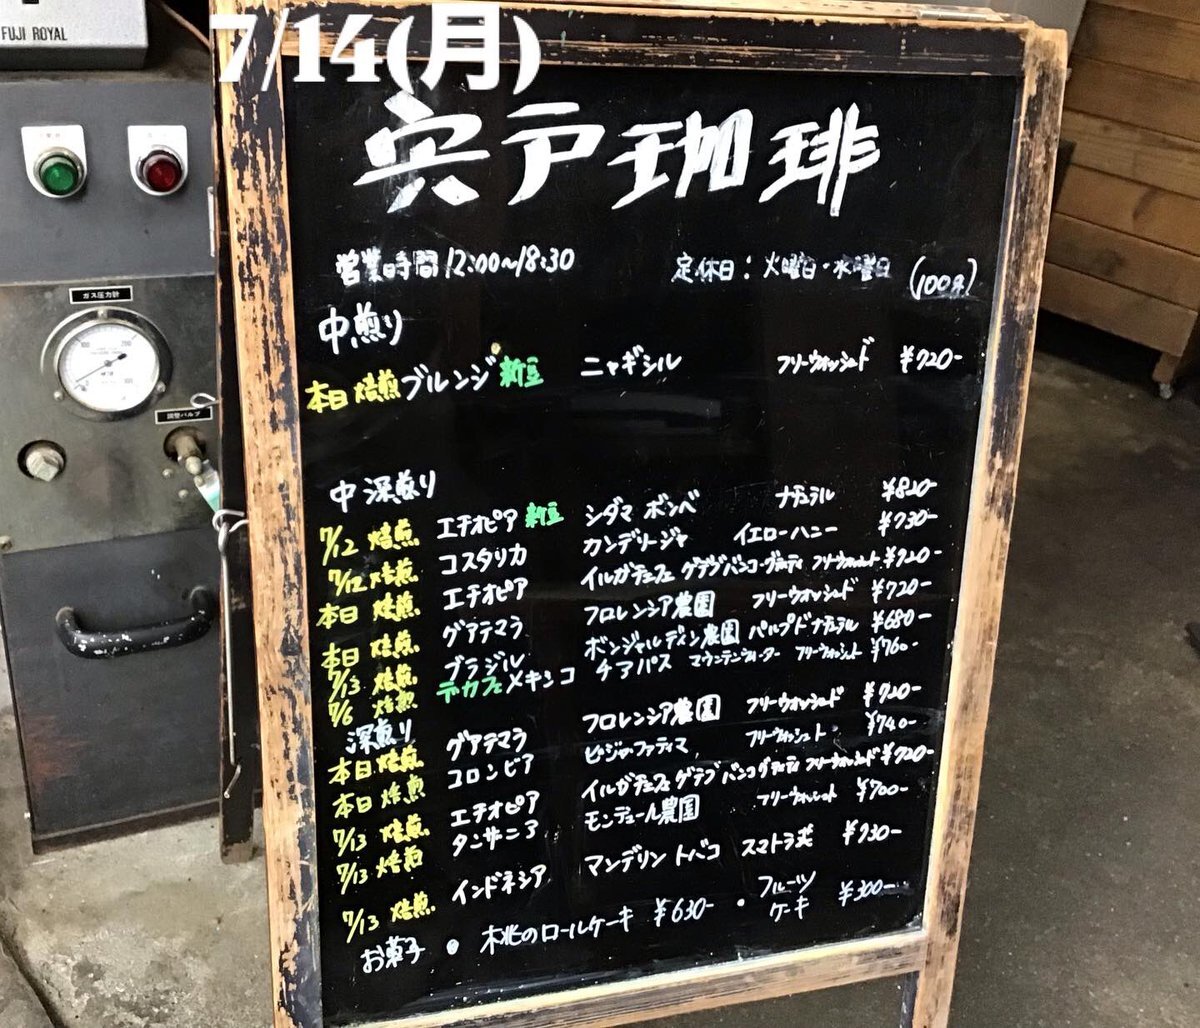 FUJI ROYAL
7/14(月)
宍戸珈琲
営業時間 12:00〜18:30 定休日：火曜日・水曜日 (100g)
ガス圧力計
調整バルブ
中煎り
本日焙煎 ブルンジ 新豆 ニャギシル フリーウォッシュド ¥720-
中深煎り
7/12 焙煎 エチオピア 新豆 シダマ ボンベ ナチュラル ¥820-
7/12 焙煎 コスタリカ カンデリージャ イエローハニー ¥730-
本日 焙煎 エチオピア イルガチェフェ ゲデブ バンコ・ゴティティ フリーウォッシュド ¥720-
本日 焙煎 グアテマラ フロレンシア農園 フリーウォッシュド ¥720-
7/13 焙煎 ブラジル ボンジャルディン農園 パルプドナチュラル ¥680-
7/6 焙煎 デカフェ メキシコ チアパス マウンテンウォーター フリーウォッシュト ¥760-
深煎り
本日 焙煎 グアテマラ フロレンシア農園 フリーウォッシュド ¥720-
本日 焙煎 コロンビア ビジャ・ファティマ フリーウォッシュト ¥740-
7/13 焙煎 エチオピア イルガチェフェ ゲデブ バンコ ゴティティ フリーウォッシュド ¥720-
7/13 焙煎 タンザニア モンデュール農園 フリーウォッシュト ¥700-
7/13 焙煎 インドネシア マンデリン トバコ スマトラ式 ¥730-
お菓子 • 桃のロールケーキ ¥630- • フルーツケーキ ¥300-